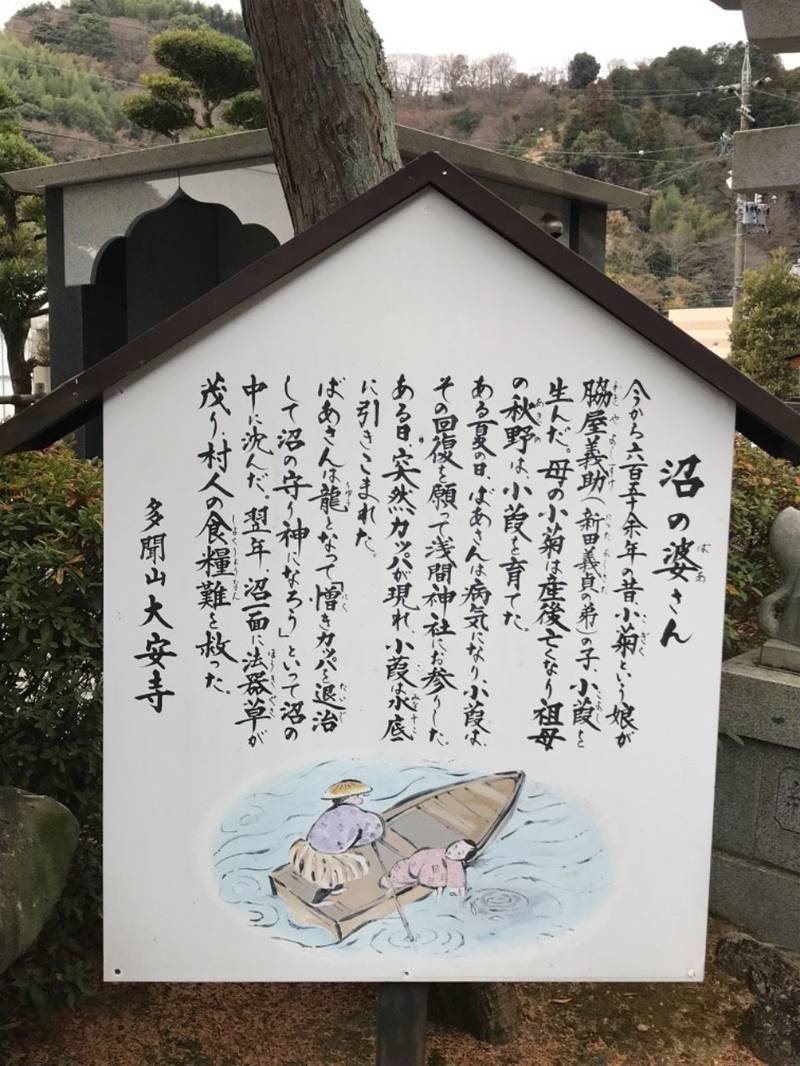 沼の婆さん
今から六百五十余年の昔、小菊という娘が
脇屋義助(新田義貞の弟)の子、小葭を
生んだ。母の小菊は産後亡なり祖母
の秋野は、小葭を育てた。
ある夏の日、ばあさんは病気になり、小葭は、
その回復を願って浅間神社にお参りした。
ある日、突然カッパが現れ、小葭は水底
に引きこまれた。
ばあさんは龍となって「憎きカッパを退治
して沼の守り神になろう」といって沼の
中に沈んだ。翌年、沼一面に法器草が
茂り、村人の食糧難を救った。
多聞山大安寺